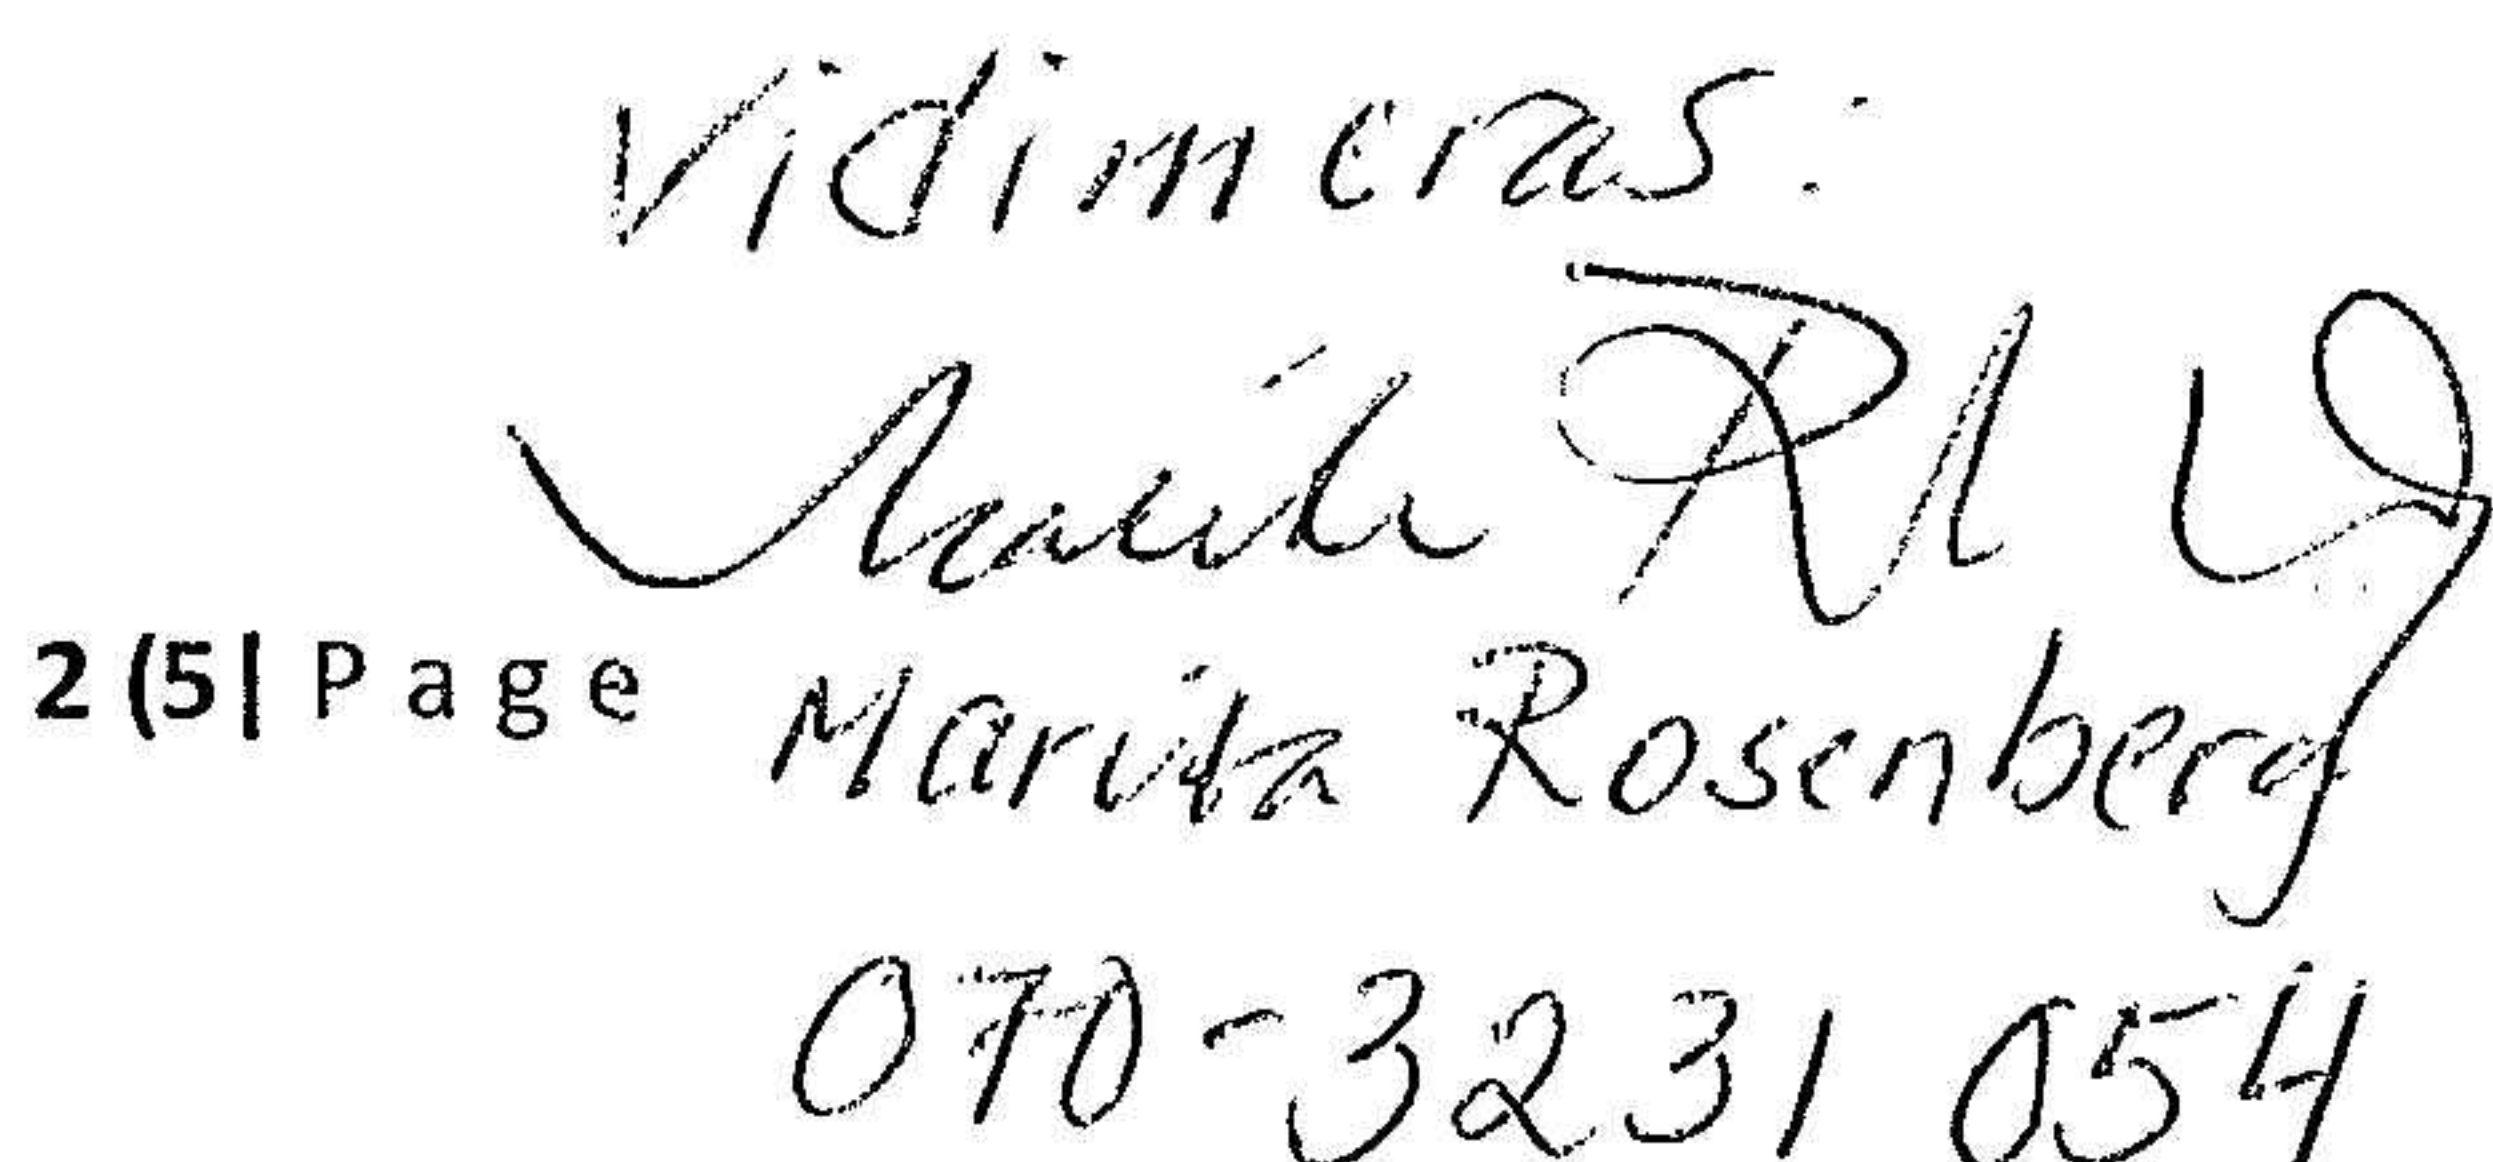 Vidimeras:
2 (5| Page Marita Rosenberg
070-3231 054